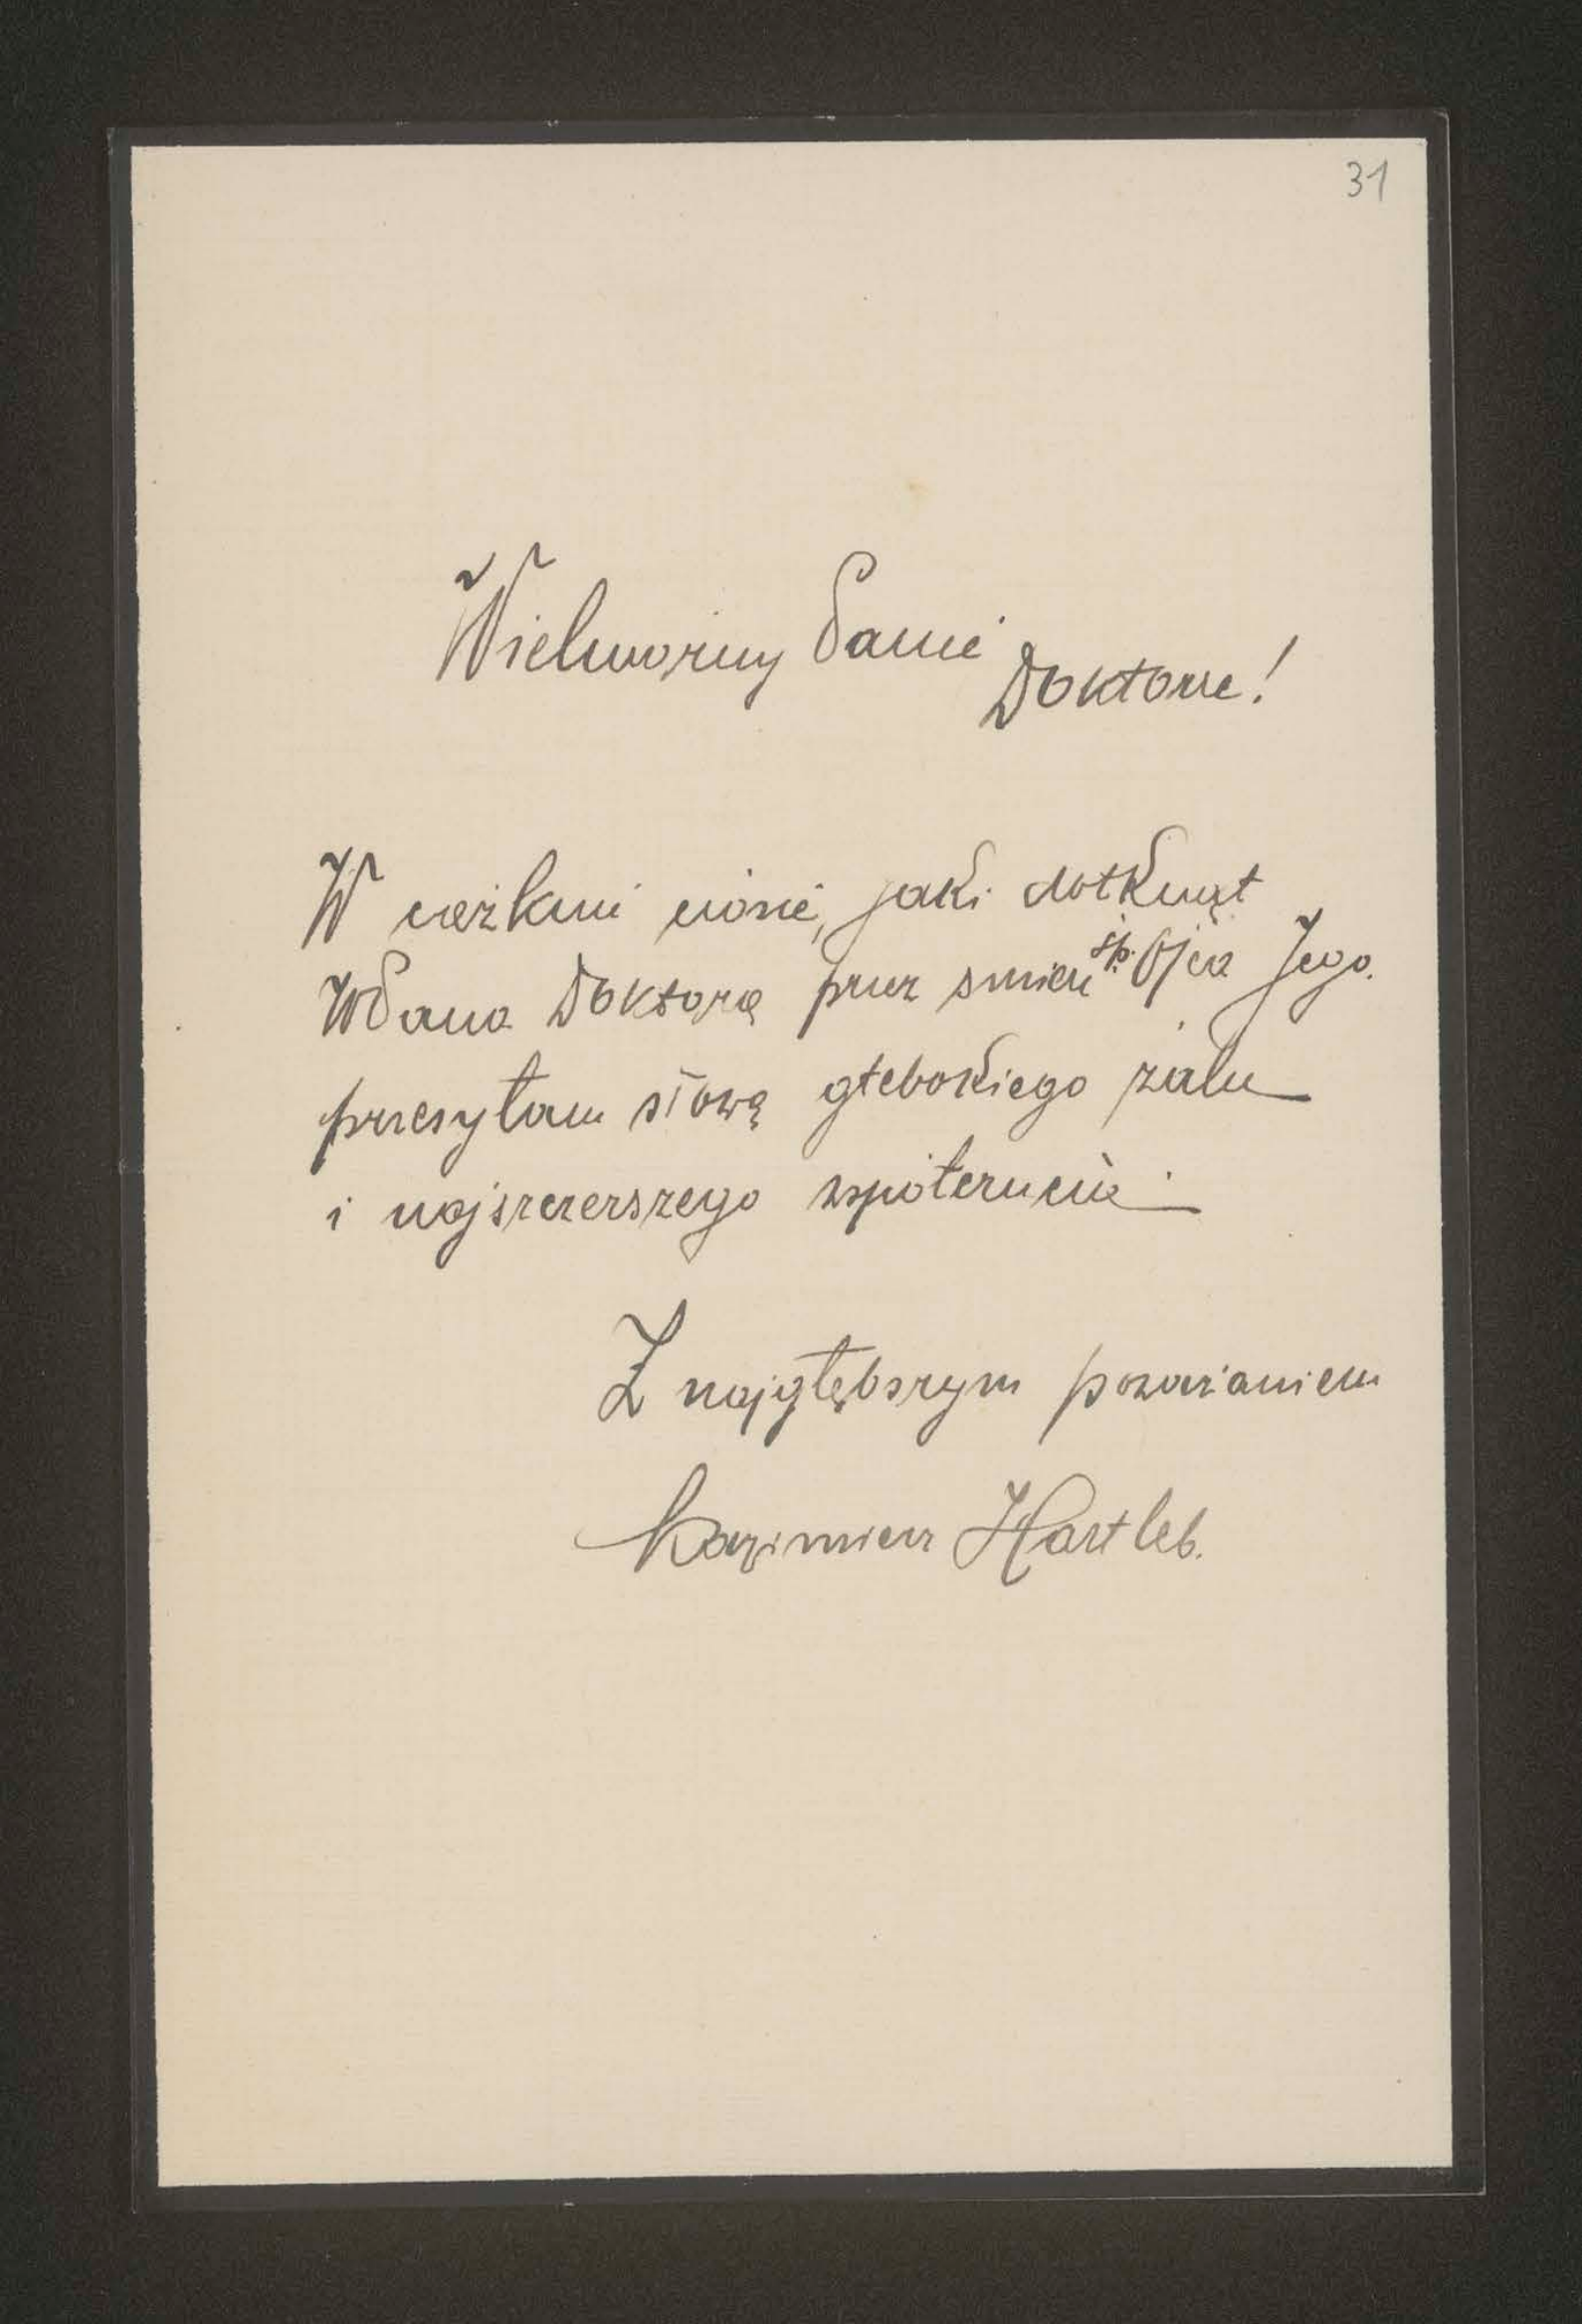 31
Wielmożny Panie
Doktorze!
W ciężkim ciosie, jaki dotknął
WPana Doktora przez śmierć śp. Ojca Jego
przesyłam słowa głębokiego żalu
i najszczerszego współczucia.
Z najgłębszym poważaniem
Kazimierz Hartleb.